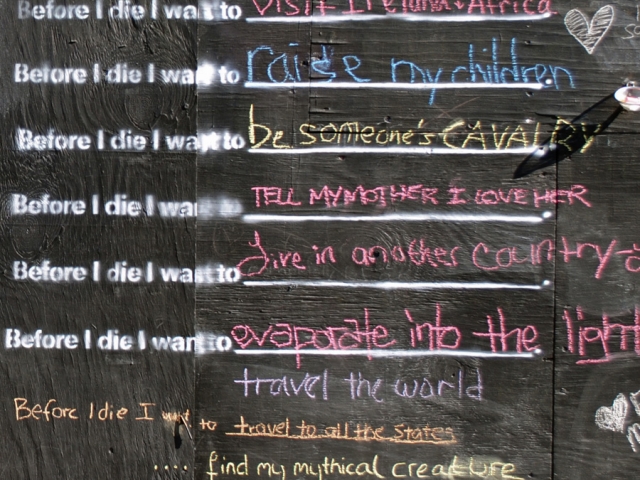 Before I die I want to visit Ireland + Africa
Before I die I want to raise my children
Before I die I want to be someone's CAVALRY
Before I die I want to TELL MY MOTHER I LOVE HER
Before I die I want to Live in another country
Before I die I want to evaporate into the light
travel the world
Before I die I want to travel to all the States
.... find my mythical creature